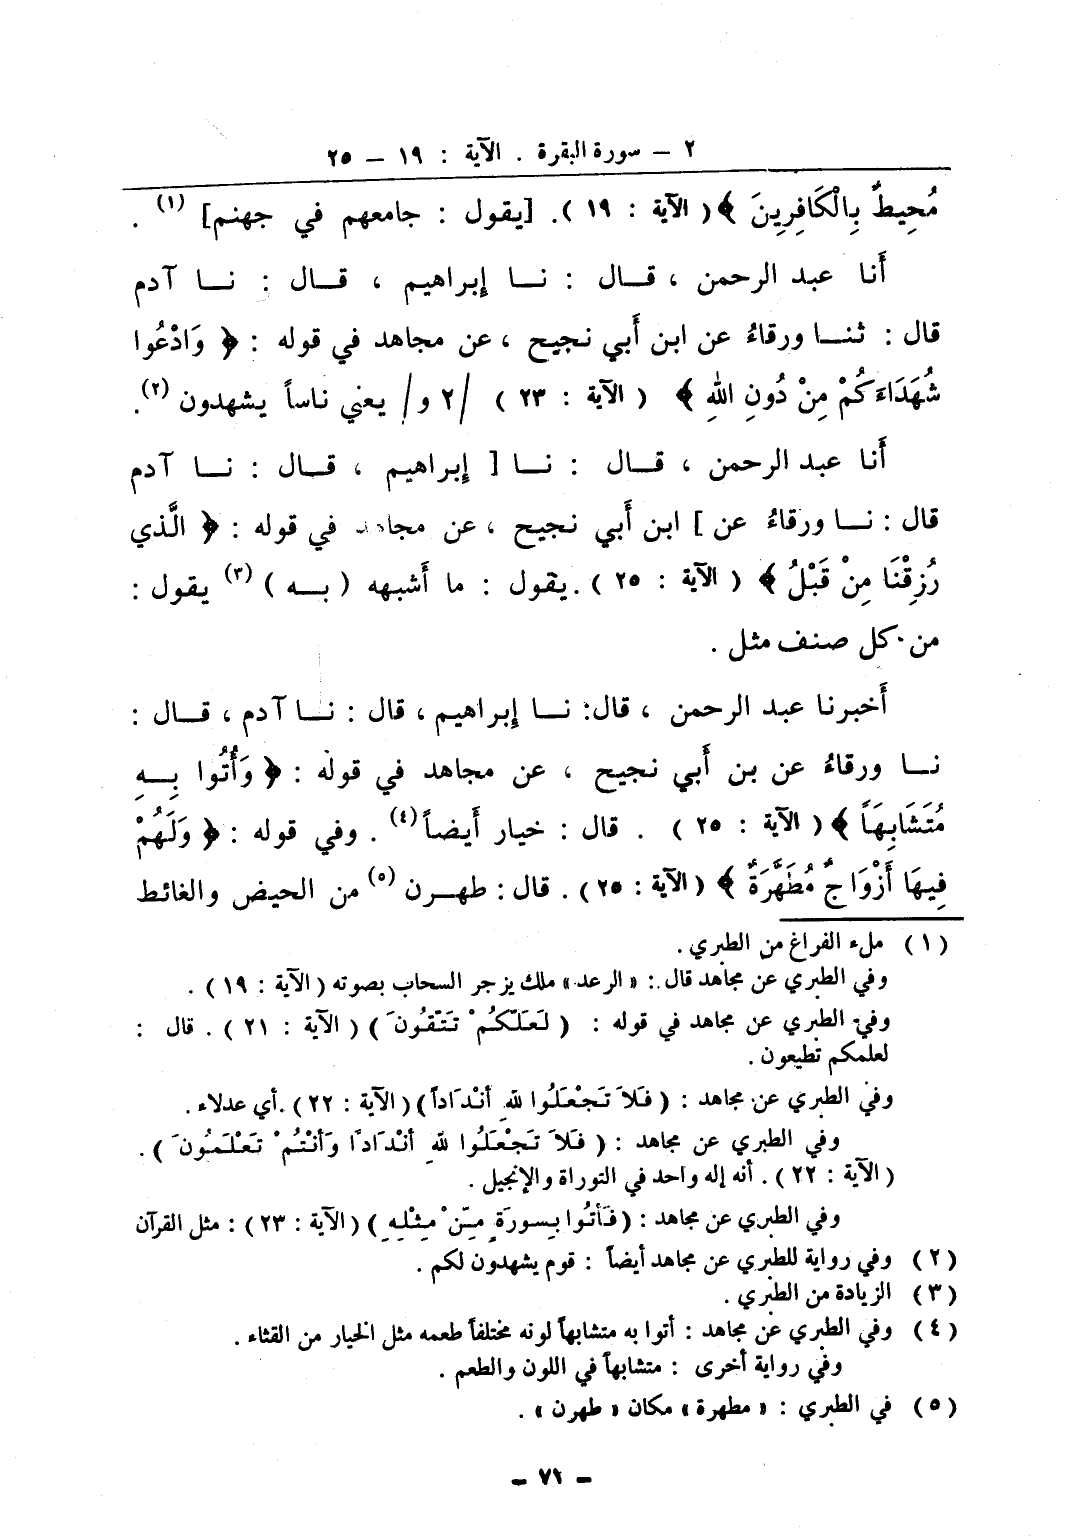 ٢ – سورة البقرة . الآية : ١٩ – ٢٥
مُحِيطٌ بِالْكَافِرِينَ ﴾ ( الآية : ١٩ ). [يقول : جامعهم في جهنم] (١) .
أَنا عبد الرحمن ، قال : نا إبراهيم ، قال : نا آدم
قال : ثنا ورقاءُ عن ابن أَبي نجيح ، عن مجاهد في قوله : ﴿ وَادْعُوا
شُهَدَاءَكُمْ مِنْ دُونِ اللهِ ﴾ ( الآية : ٢٣ ) /٢ و/ يعني ناساً يشهدون (٢).
أَنا عبد الرحمن ، قال : نا [ إبراهيم ، قال : نا آدم
قال : نا ورقاءُ عن ] ابن أَبي نجيح ، عن مجاهد في قوله : ﴿ الَّذي
رُزِقْنَا مِنْ قَبْلُ ﴾ ( الآية : ٢٥ ) . يقول : ما أَشبهه ( به ) (٣) يقول :
من كل صنف مثل .
أَخبرنا عبد الرحمن ، قال: نا إبراهيم ، قال : نا آدم ، قال :
نا ورقاءُ عن بن أَبي نجيح ، عن مجاهد في قوله : ﴿ وَأُتُوا بِهِ
مُتَشَابِهَاً ﴾ ( الآية : ٢٥ ) . قال : خيار أَيضاً (٤) . وفي قوله : ﴿ وَلَهُمْ
فِيهَا أَزْوَاجٌ مُطَهَّرَةٌ ﴾ ( الآية : ٢٥ ) . قال : طهرن (٥) من الحيض والغائط
( ١ ) ملء الفراغ من الطبري .
وفي الطبري عن مجاهد قال : « الرعد » ملك يزجر السحاب بصوته ( الآية : ١٩ ) .
وفي الطبري عن مجاهد في قوله : ( لَعَلّكُمْ تَتّقُونَ ) ( الآية : ٢١ ) . قال :
لعلمكم تطيعون .
وفي الطبري عن مجاهد : ( فَلاَ تَجْعَلُوا للهِ أنْدَاداً ) ( الآية : ٢٢ ) .أي عدلاء .
وفي الطبري عن مجاهد : ( فَلاَ تَجْعَلُوا للهِ أنْدَادًا وَأنْتُمْ تَعْلَمُونَ ) .
( الآية : ٢٢ ) . أنه إله واحد في التوراة والإنجيل .
وفي الطبري عن مجاهد : ( فَأتُوا بِسورَةٍ مِنْ مِثْلِهِ ) ( الآية : ٢٣ ) : مثل القرآن
( ٢ ) وفي رواية للطبري عن مجاهد أيضاً : قوم يشهدون لكم .
( ٣ ) الزيادة من الطبري .
( ٤ ) وفي الطبري عن مجاهد : أتوا به متشابهاً لونه مختلفاً طعمه مثل الخيار من القثاء .
وفي رواية أخرى : متشابهاً في اللون والطعم .
( ٥ ) في الطبري : « مطهرة » مكان « طهرن » .
– ٧١ –